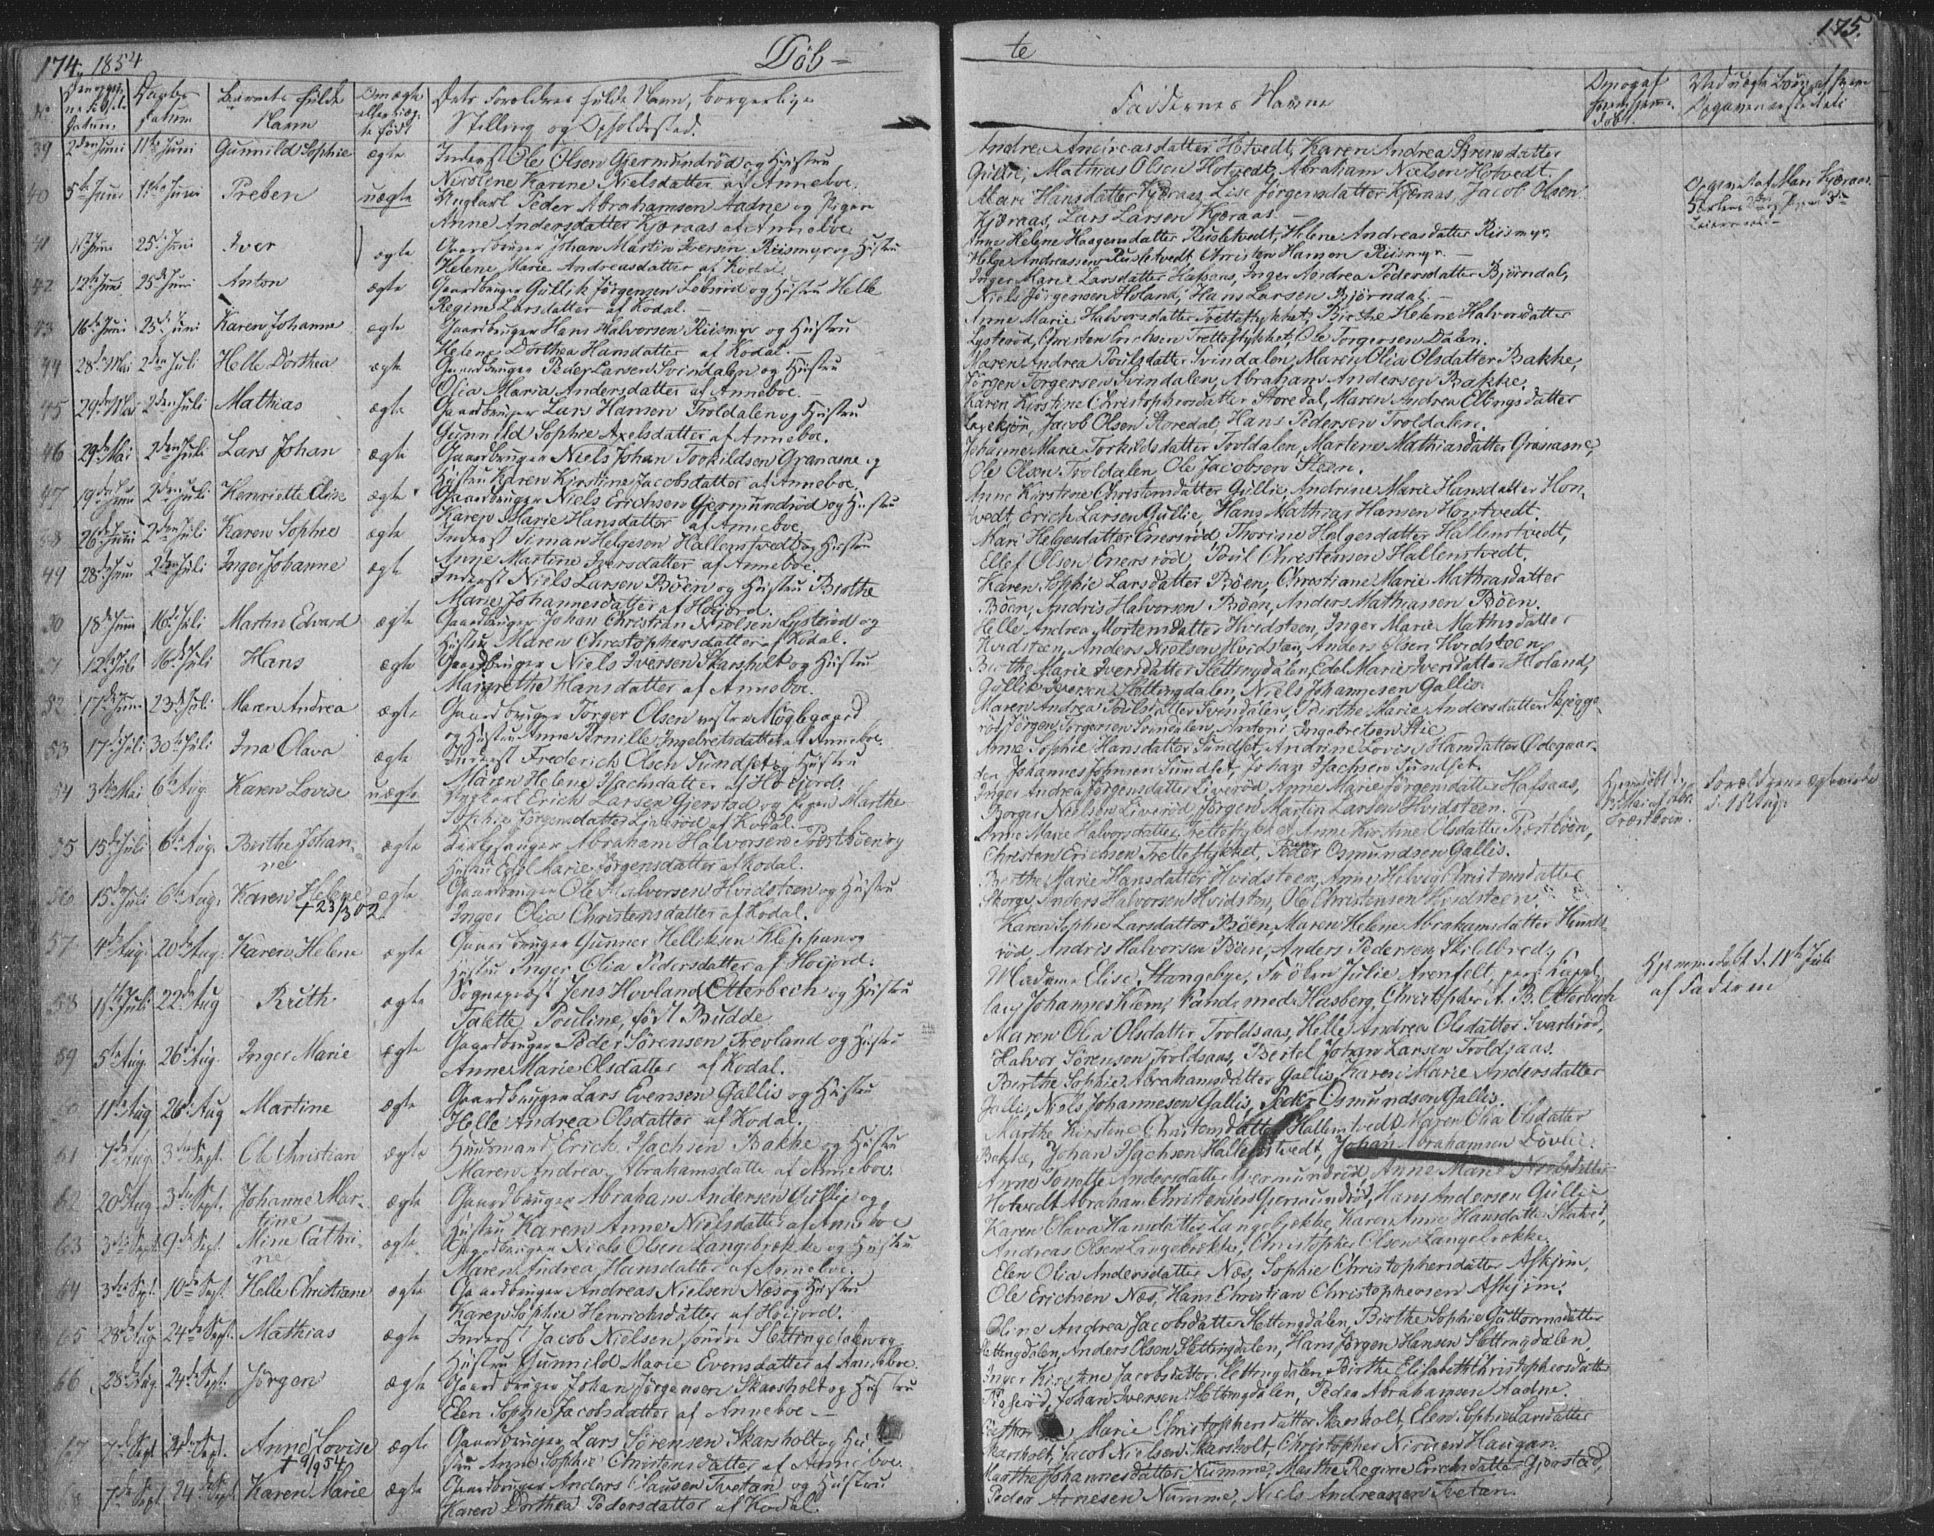 174. 1854 Døb-
No Barnets fulde Navn ægte eller uægte født Dets Forældres fulde Navn, borgerlige Stilling og Opholdssted.
39 2den Juni 11te Juni Gunnild Sophie ægte Inderst Ole Olsen Gjermundrød og Hustru
Nicoline Karene Nielsdatter af Anneboe.
40 5te Juni 11te Juni Preben uægte Ungkarl Peder Abrahamsen Aadne og Pigen
Anne Andersdatter Kjæraas af Anneboe
41 25de Juni Iver ægte Gaardbruger Johan Martin Iversen Riismyr og Hustru
Helene Marie Andreasdatter af Kodal.
42 12te Juni 25de Juni Anton ægte Gaardbruger Gullik Jørgensen og Hustru Helle
Regine Larsdatter af Kodal.
43 16de Juni 25de Juni Karen Johanne ægte Gaardbruger Hans Halvorsen Riismyr og Hustru
Helene Dorthea Hansdatter af Kodal.
44 28de Mai 2den Juli Helle Dorthea ægte Gaardbruger Peder Larsen Svindalen og Hustru
Olia Maria Andersdatter af Anneboe.
45 29de Mai 2den Juli Mathias ægte Gaardbruger Lars Hansen Troldalen og Hustru
Gunnild Sophie Axelsdatter af Anneboe.
46 29de Mai 2den Juli Lars Johan ægte Gaardbruger Niels Johan Torkildsen Granasne og
Hustru Karen Kirstine Jacobsdatter af Anneboe.
47 19de Juni 2den Juli Henriette Elise ægte Gaardbruger Niels Erichsen Gjermundrød og Hustru
Karen Marie Hansdatter af Anneboe.
48 26de Juni 2den Juli Karen Sophie ægte Inderst Siman Helgesen Hallenstvedt og Hustru
Anne Martine Iversdatter af Anneboe.
49 28de Juni 2den Juli Inger Johanne ægte Inderst Niels Larsen Bøen og Hustru Birthe
Marie Johannesdatter af Høijord.
50 18de Juni 16de Juli Martin Edvard ægte Gaardbruger Johan Christian Nielsen Lysterød og
Hustru Maren Christophersdatter af Kodal.
51 12te Juli 16de Juli Hans ægte Gaardbruger Niels Iversen Skarsholt og Hustru
Margrethe Hansdatter af Anneboe.
52 17de Juni 23de Juli Maren Andrea ægte Gaardbruger Torger Olsen vestre Møglegaard
og Hustru Anne Pernille Ingebretsdatter af Anneboe.
53 17de Juli 30te Juli Ina Olava ægte Inderst Frederich Olsen Sundset og Hustru
Maren Helene Isachsdatter af Høijord.
54 3die Mai 6te Aug. Karen Lovise uægte Ungkarl Erich Larsen Gjerstad og Pigen Marthe
Sophie Jørgensdatter Liverød af Kodal.
55 15de Juli 6te Aug. Birthe Johan- ægte Kirkesanger Abraham Halvorsen Præstbøen og
ne Hustru Edel Marie Jørgensdatter af Kodal.
56 15de Juli 6te Aug. Karen Helene ægte Gaardbruger Ole Halvorsen Hvidsteen og Hustru
+ 23/3 02 Inger Olia Christensdatter af Kodal.
57 4de Aug. 20de Aug. Karen Helene ægte Gaardbruger Gunner Helliksen Kleppan og
Hustru Inger Olia Pedersdatter af Høijord.
58 1ste Juli 22de Aug Ruth ægte Sognepræst Jens Hovland Otterbech og Hustru
Talette Pouline, født Budde
59 5te Aug. 26de Aug. Inger Marie ægte Gaardbruger Peder Sørensen Trevland og Hustru
Anne Marie Olsdatter af Kodal.
60 11te Aug 26de Aug Martine ægte Gaardbruger Lars Evensen Gallis og Hustru
Helle Andrea Olsdatter af Kodal.
61 7de Aug 3die Sept. Ole Christian ægte Huusmand Erich Isachsen Bakke og Hustru
Maren Andrea Abrahamsdatter af Anneboe.
62 20de Aug 3die Sept. Johanne Mar- ægte Gaardbruger Abraham Andersen Gullie og
tine Hustru Karen Anne Nielsdatter af Anneboe
63 3die Sept 9de Sept. Mine Cathri- ægte Gaardbruger Niels Olsen Langebrække og Hustru
ne Maren Andrea Hansdatter af Anneboe.
64 3die Sept. 10de Sept. Helle Christiane ægte Gaardbruger Andreas Nielsen Næs og Hustru
Karen Sophie Henrichsdatter af Høijord.
65 28de Aug 24de Sept. Mathias ægte Inderst Jacob Nielsen søndre Slettingdalen og
Hustru Gunnild Marie Evensdatter af Anneboe.
66 28de Aug. 24de Sept. Jørgen ægte Gaardbruger Johan Jørgensen Skarsholt og Hustru
Elen Sophie Jacobsdatter af Anneboe.
67 7de Sept 24de Sept. Anne Lovise ægte Gaardbruger Lars Sørensen Skarsholt og Hu
+ 9/9 54 stru Anne Sophie Christensdatter af Anneboe.
7de Sept. 24de Sept Karen Marie ægte Gaardbruger Anders Clausen Tvetan og Hustru
Karen Dorthea Pedersdatter af Kodal.
te 175.
Faddernes Navne
Andrea Andreasdatter Hotvedt, Karen Andrea Sørensdatter
Gullie, Mathias Olsen Hotvedt, Abraham Nielsen Hotvedt.
Mari Hansdatter Kjæraas, Lise Jørgensdatter Kjæraas, Jacob Olsen
Kjæraas, Lars Larsen Kjæraas.
Anne Helene Haagensdatter Rusletvedt, Helene Andreasdatter Riismyr.
Helge Andreassen Rusletvedt, Christen Hansen Riismyr.
Inger Marie Larsdatter Hafsaas, Inger Andrea Pedersdatter Bjørndal,
Niels Jørgensen Holand, Hans Larsen Bjørndal.
Anne Marie Halvorsdatter Tretteflykket, Birthe Helene Halvorsdatter
Lysterød, Christen Erichsen Tretteflykket, Ole Torgersen Dalen.
Maren Andrea Poulsdatter Svindalen, Maren Olia Olsdatter Bakke,
Jørgen Torgersen Svindalen, Abraham Andersen Bakke.
Karen Kirstine Christophersdatter Storedal, Maren Andrea Ellingsdatter
Jacob Olsen Storedal, Hans Pedersen Troldalen.
Johanne Marie Torkildsdatter Troldalen, Martene Mathiasdatter Granasne,
Ole Olsen Troldalen, Ole Jacobsen Steen.
Anne Kirstine Christensdatter Gullie, Andrine Marie Hansdatter Hon-
tvedt, Erich Larsen Gullie, Hans Mathias Hansen Hontvedt.
Mari Helgesdatter Enersrød, Thorine Helgesdatter Hallenstvedt,
Ellef Olsen Enersrød, Poul Christensen Hallenstvedt.
Karen Sophie Larsdatter Bøen, Christiane Marie Mathiasdatter
Bøen, Andris Halvorsen Bøen, Anders Mathiassen Bøen.
Helle Andrea Mortensdatter Hvidsteen, Inger Marie Mathisdatter
Hvidsteen, Anders Nielsen Hvidsteen, Anders Olsen Hvidsteen.
Birthe Marie Iversdatter Slettingdalen, Edel Marie Iversdatter Holand,
Gullik Iversen Slettingdalen, Niels Johannesen Gallis.
Maren Andrea Poulsdatter Svindalen, Birthe Marie Andersdatter Skjegge-
rød, Jørgen Torgersen Svindalen, Antoni Ingebretsen Stie.
Anne Sophie Hansdatter Sundset, Andrine Lovise Hansdatter Ødegaar-
den, Johannes Johnsen Sundset, Johan Isachsen Sundset.
Inger Andrea Jørgensdatter Liverød, Anne Marie Jørgensdatter Hafsaas,
Borger Nielsen Liverød, Jørgen Martin Larsen Hvidsteen.
Anne Marie Halvorsdatter Tretteflykket, Anne Kirstine Olsdatter Præstbøen,
Christen Erichsen Tretteflykket, Peder Osmundsen Gallis.
Birthe Marie Hansdatter Hvidsteen, Anne Helvig Christensdatter
Skorge, Anders Halvorsen Hvidsteen, Ole Christensen Hvidsteen.
Karen Sophie Larsdatter Bøen, Maren Helene Abrahamsdatter
rød, Andris Halvorsen Bøen, Anders Pedersen Skildbred.
Madame Elise Stangebye, Frøken Julie Arenfelt, pers. Kappel-
lan Johannes Klem, Kand. med. Hasberg, Christopher A. B. Otterbech
Maren Olia Olsdatter Troldsaas, Helle Andrea Olsdatter Svartsrød,
Halvor Sørensen Troldsaas, Bertel Johan Larsen Troldsaas.
Birthe Sophie Abrahamsdatter Gallis, Karen Marie Andersdatter
Gallis, Niels Johannesen Gallis, Peder Osmundsen Gallis.
Marthe Kirstine Christensdatter Hallenstvedt, Karen Olia Olsdatter
Bakke, Johan Isachsen Hallenstvedt, Johan Abrahamsen Døvle.
Anne Tonette Andersdatter Gjermundrød, Anne Marie Nielsdatter
Hotvedt, Abraham Christensen Gjermundrød, Hans Andersen Gullie
Karen Olava Hansdatter Langebrække, Karen Anne Hansdatter
Andreas Olsen Langebrække, Christopher Olsen Langebrække.
Elen Olia Andersdatter Næs, Sophie Christophersdatter Askjim,
Ole Erichsen Næs, Hans Christian Christophersen Askjim.
Oline Andrea Jacobsdatter Slettingdalen, Birthe Sophie Guttormsdatter
Slettingdalen, Anders Olsen Slettingdalen, Hans Jørgen Hansen Slettingdalen.
Inger Kirstine Jacobsdatter Slettingdalen, Birthe Elisabeth Christophersdatter
Johan Iversen Slettingdalen, Peder Abrahamsen Aadne.
Marie Christophersdatter Skarsholt, Elen Sophie Larsdatter
Skarsholt, Jacob Nielsen Skarsholt, Christopher Nirisen Haugan.
Marthe Johannesdatter Numme, Marthe Regine Erichsdatter Gjerstad,
Peder Arnesen Numme, Niels Andreasen Tvetan.
Opgivet af Mari Kjæraas.
Forældrenes ægtevielse
Hjemmedøbt d. 11te Juli
af Faderen